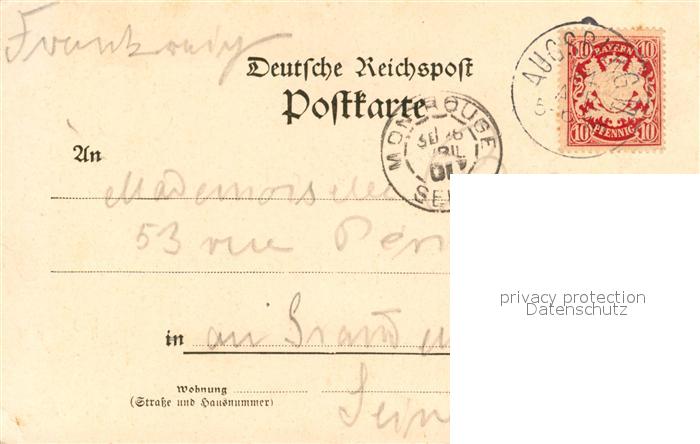 Frankreich
Deutsche Reichspost
Postkarte
10 BAYERN 10
10 PFENNIG 10
AUGSBURG
MONTROUGE
AVRIL
01
SEINE
An
Mademoiselle
53 rue
in
au Grand
Wohnung
(Straße und Hausnummer)
Seine
privacy protection
Datenschutz